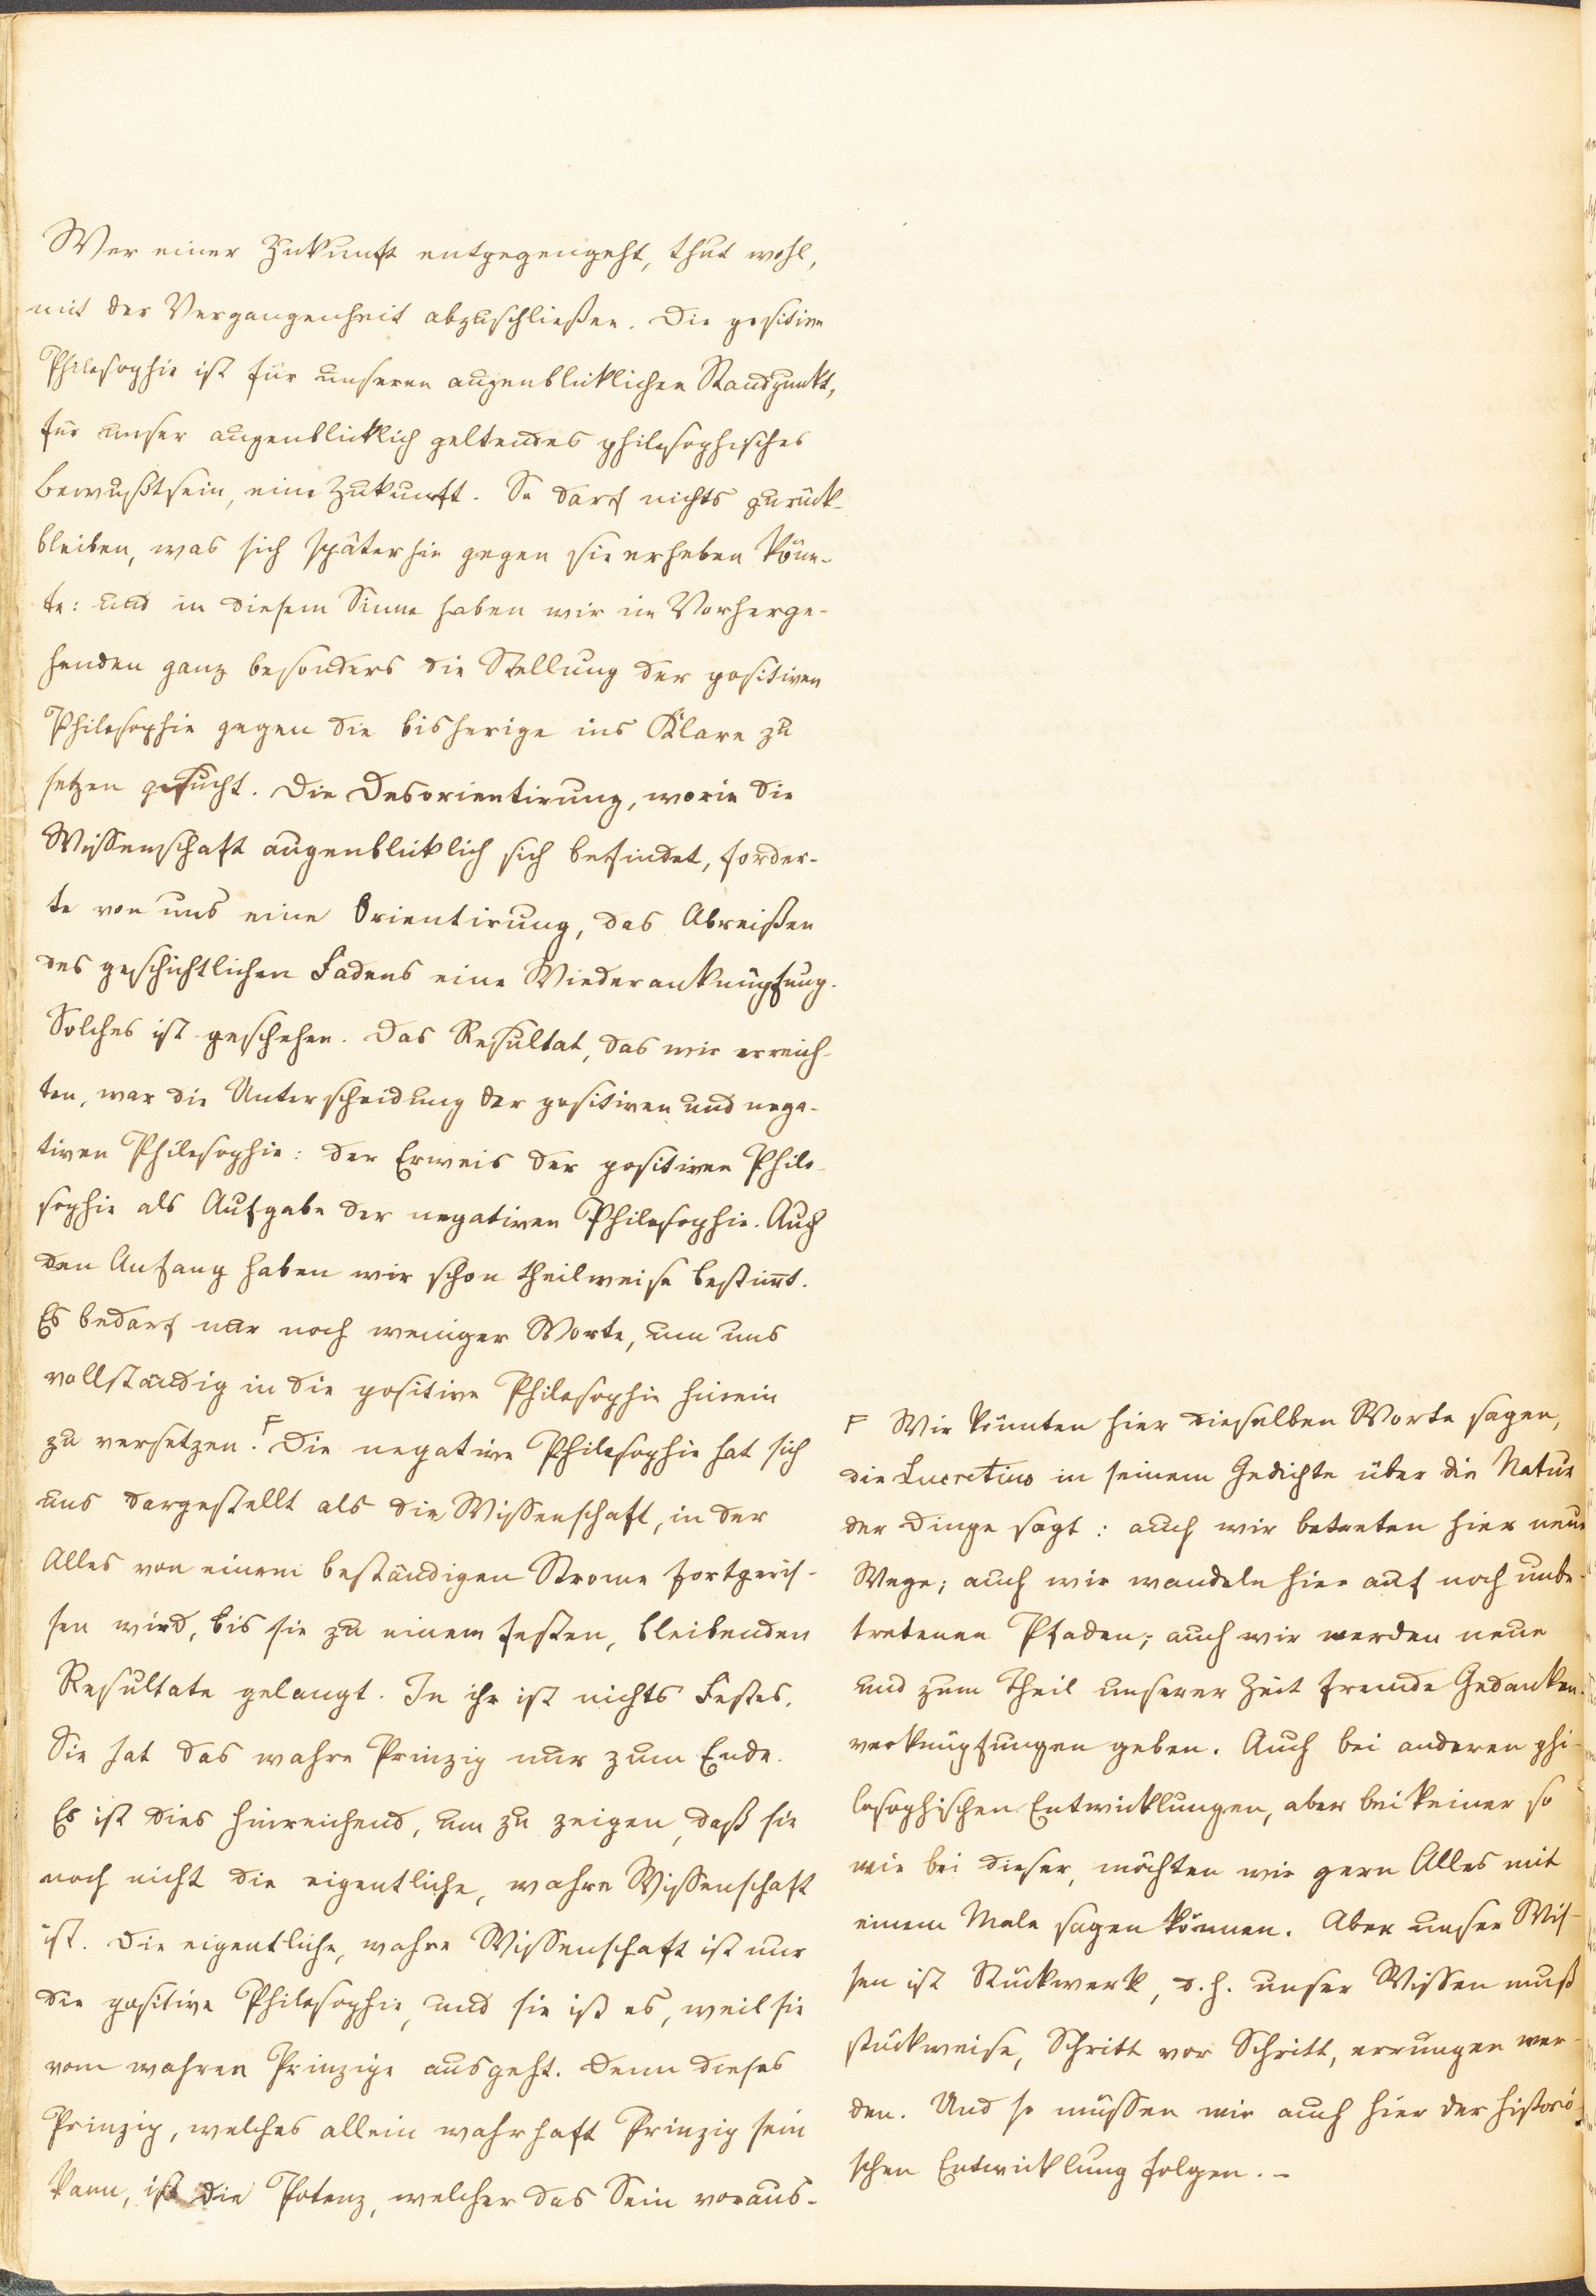 Wer einer Zukunft entgegengeht, thut wohl,
mit der Vergangenheit abzuschließen. Die positive
Philosophie ist für unseren augenblicklichen Standpunkt,
für unser augenblicklich geltendes philosophisches
Bewußtsein, eine Zukunft. So darf nichts zurück-
bleiben, was sich späterhin gegen sie erheben könn-
te: und in diesem Sinne haben wir im Vorherge-
henden ganz besonders die Stellung der positiven
Philosophie gegen die bisherige ins Klare zu
setzen gesucht. Die Desorientirung, worin die
Wissenschaft augenblicklich sich befindet, forder-
te von uns eine Orientirung, das Abreißen
des geschichtlichen Fadens eine Wiederanknüpfung.
Solches ist geschehen. Das Resultat, das wir erreich-
ten, war die Unterscheidung der positiven und nega-
tiven Philosophie: der Erweis der positiven Philo-
sophie als Aufgabe der negativen Philosophie. Auch
den Anfang haben wir schon theilweise bestim̅t.
Es bedarf nur noch weniger Worte, um uns
vollständig in die positive Philosophie hinein
zu versetzen. F Die negative Philosophie hat sich
uns dargestellt als die Wissenschaft, in der
Alles von einem beständigen Strome fortgeris-
sen wird, bis sie zu einem festen, bleibenden
Resultate gelangt. In ihr ist nichts Festes.
Sie hat das wahre Prinzip nur zum Ende.
Es ist dies hinreichend, um zu zeigen, daß sie
noch nicht die eigentliche, wahre Wissenschaft
ist. Die eigentliche, wahre Wissenschaft ist nur
die positive Philosophie, und sie ist es, weil sie
vom wahren Prinzipe ausgeht. Denn dieses
Prinzip, welches allein wahrhaft Prinzip sein
kann, ist die Potenz, welcher das Sein voraus-
F Wir könnten hier dieselben Worte sagen,
die Lucretius in seinem Gedichte über die Natur
der Dinge sagt: auch wir betreten hier neue
Wege; auch wir wandeln hier auf noch unbe-
tretenen Pfaden; auch wir werden neue
und zum Theil unserer Zeit fremde Gedanken-
verknüpfungen geben. Auch bei anderen phi-
losophischen Entwicklungen, aber bei keiner so
wie bei dieser, möchten wir gern Alles mit
einem Male sagen können. Aber unser Wis-
sen ist Stückwerk, d. h. unser Wissen muß
stückweise, Schritt vor Schritt, errungen wer-
den. Und so müssen wir auch hier der histori-
schen Entwicklung folgen. –